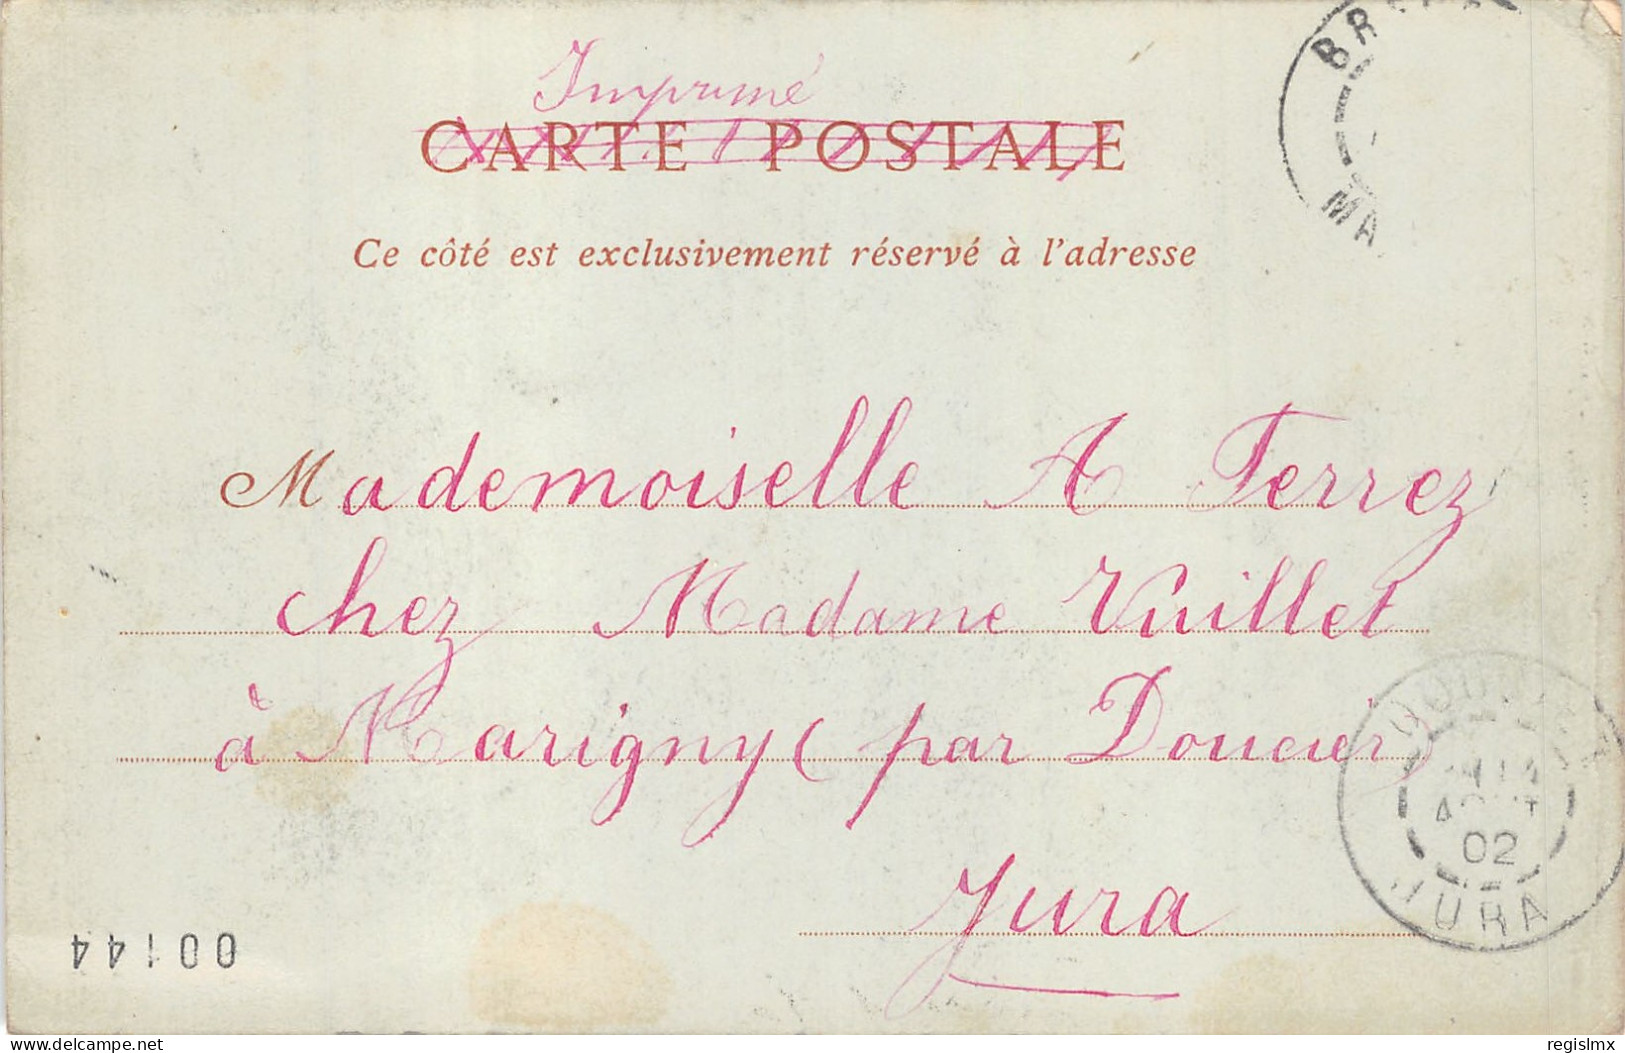 Imprimé
CARTE POSTALE
Ce côté est exclusivement réservé à l'adresse
Mademoiselle A Ferrez
chez Madame Vuillet
à Marigny (par Doucier)
Jura
AOUT
02
JURA
00144
delcampe.net
regislmx